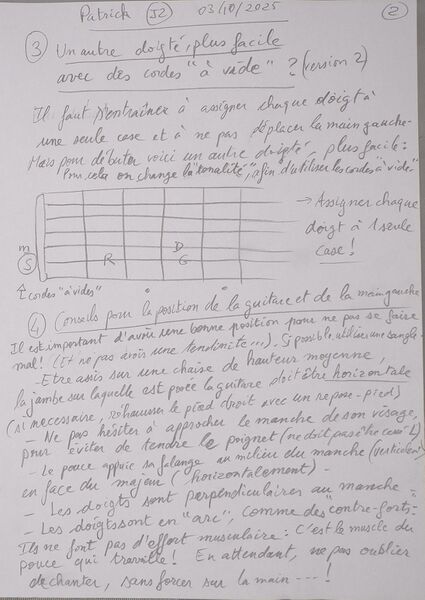 Patrick J2 03/10/2025 2
3 Un autre doigté, plus facile
avec des cordes "à vide" ? (version 2)
Il faut s'entraîner à assigner chaque doigt à
une seule case et à ne pas déplacer la main gauche.
Mais pour débuter voici un autre doigté, plus facile:
Pour cela on change la "tonalité", afin d'utiliser les cordes "à vide"
→ Assigner chaque
doigt à 1 seule
case !
m D
S R G
↑ cordes "à vides"
4 Conseils pour la position de la guitare et de la main gauche
Il est important d'avoir une bonne position pour ne pas se faire
mal ! (Et ne pas avoir une tendinite...). Si possible, utiliser une sangle.
- Etre assis sur une chaise de hauteur moyenne,
la jambe sur laquelle est posée la guitare doit être horizontale
(si necessaire, réhausser le pied droit avec un repose-pied)
- Ne pas hésiter à approcher le manche de son visage,
pour éviter de tendre le poignet (ne doit pas être cassé !)
- Le pouce appuie sa falange au milieu du manche (verticalement)
en face du majeur (horizontalement) -
- Les doigts sont perpendiculaires au manche -
- Les doigts sont en "arc", comme des "contre-forts".
Ils ne font pas d'effort musculaire : C'est le muscle du
pouce qui travaille ! En attendant, ne pas oublier
de chanter, sans forcer sur la main --- !